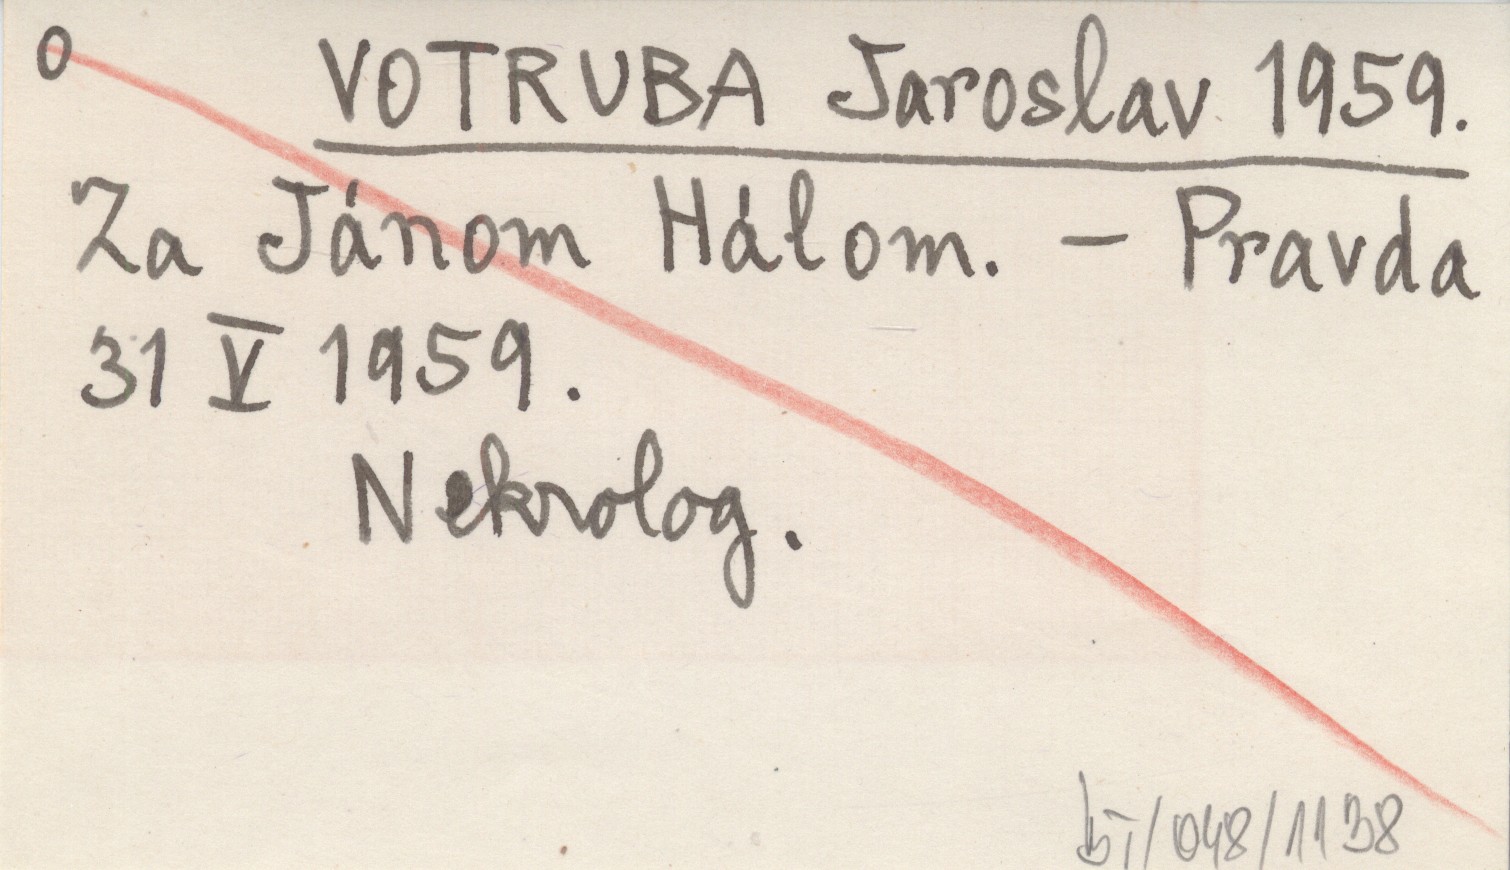 O VOTRUBA Jaroslav 1959.
Za Jánom Hálom. – Pravda
31 V 1959.
Nekrolog.
bI/048/1138